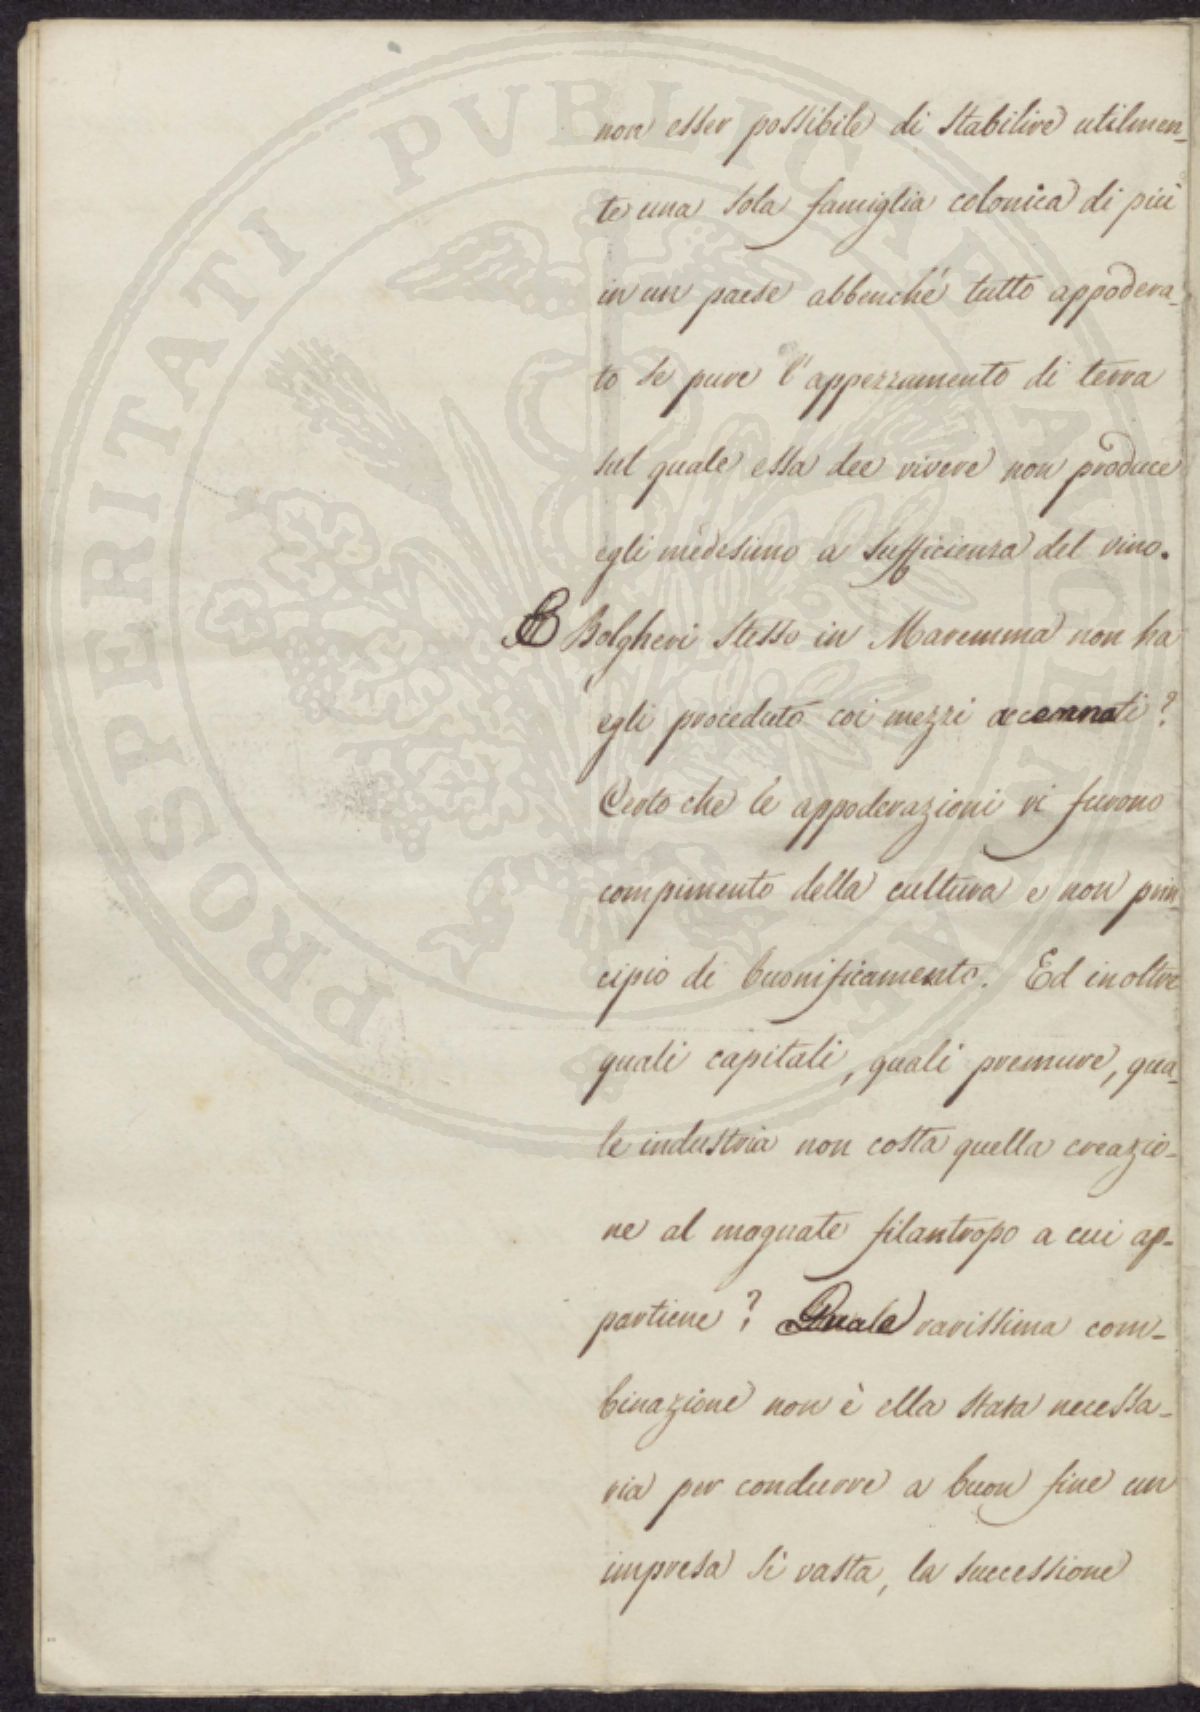 non esser possibile di stabilire utilmen-
te una sola famiglia colonica di più
in un paese abbenché tutto appodera-
to se pure l'appezzamento di terra
sul quale essa dee vivere non produce
egli medesimo a sufficienza del vino.
E Bolgheri stesso in Maremma non ha
egli proceduto coi mezzi accennati?
Certo che le appoderazioni vi furono
compimento della cultura e non prin-
cipio di buonificamento. Ed inoltre
quali capitali, quali premure, qua-
le industria non costa quella creazio-
ne al magnate filantropo a cui ap-
partiene? Quale rarissima com-
binazione non è ella stata necessa-
ria per condurre a buon fine un
impresa sì vasta, la successione
PROSPERITATI PUBLICAE AUGENDAE